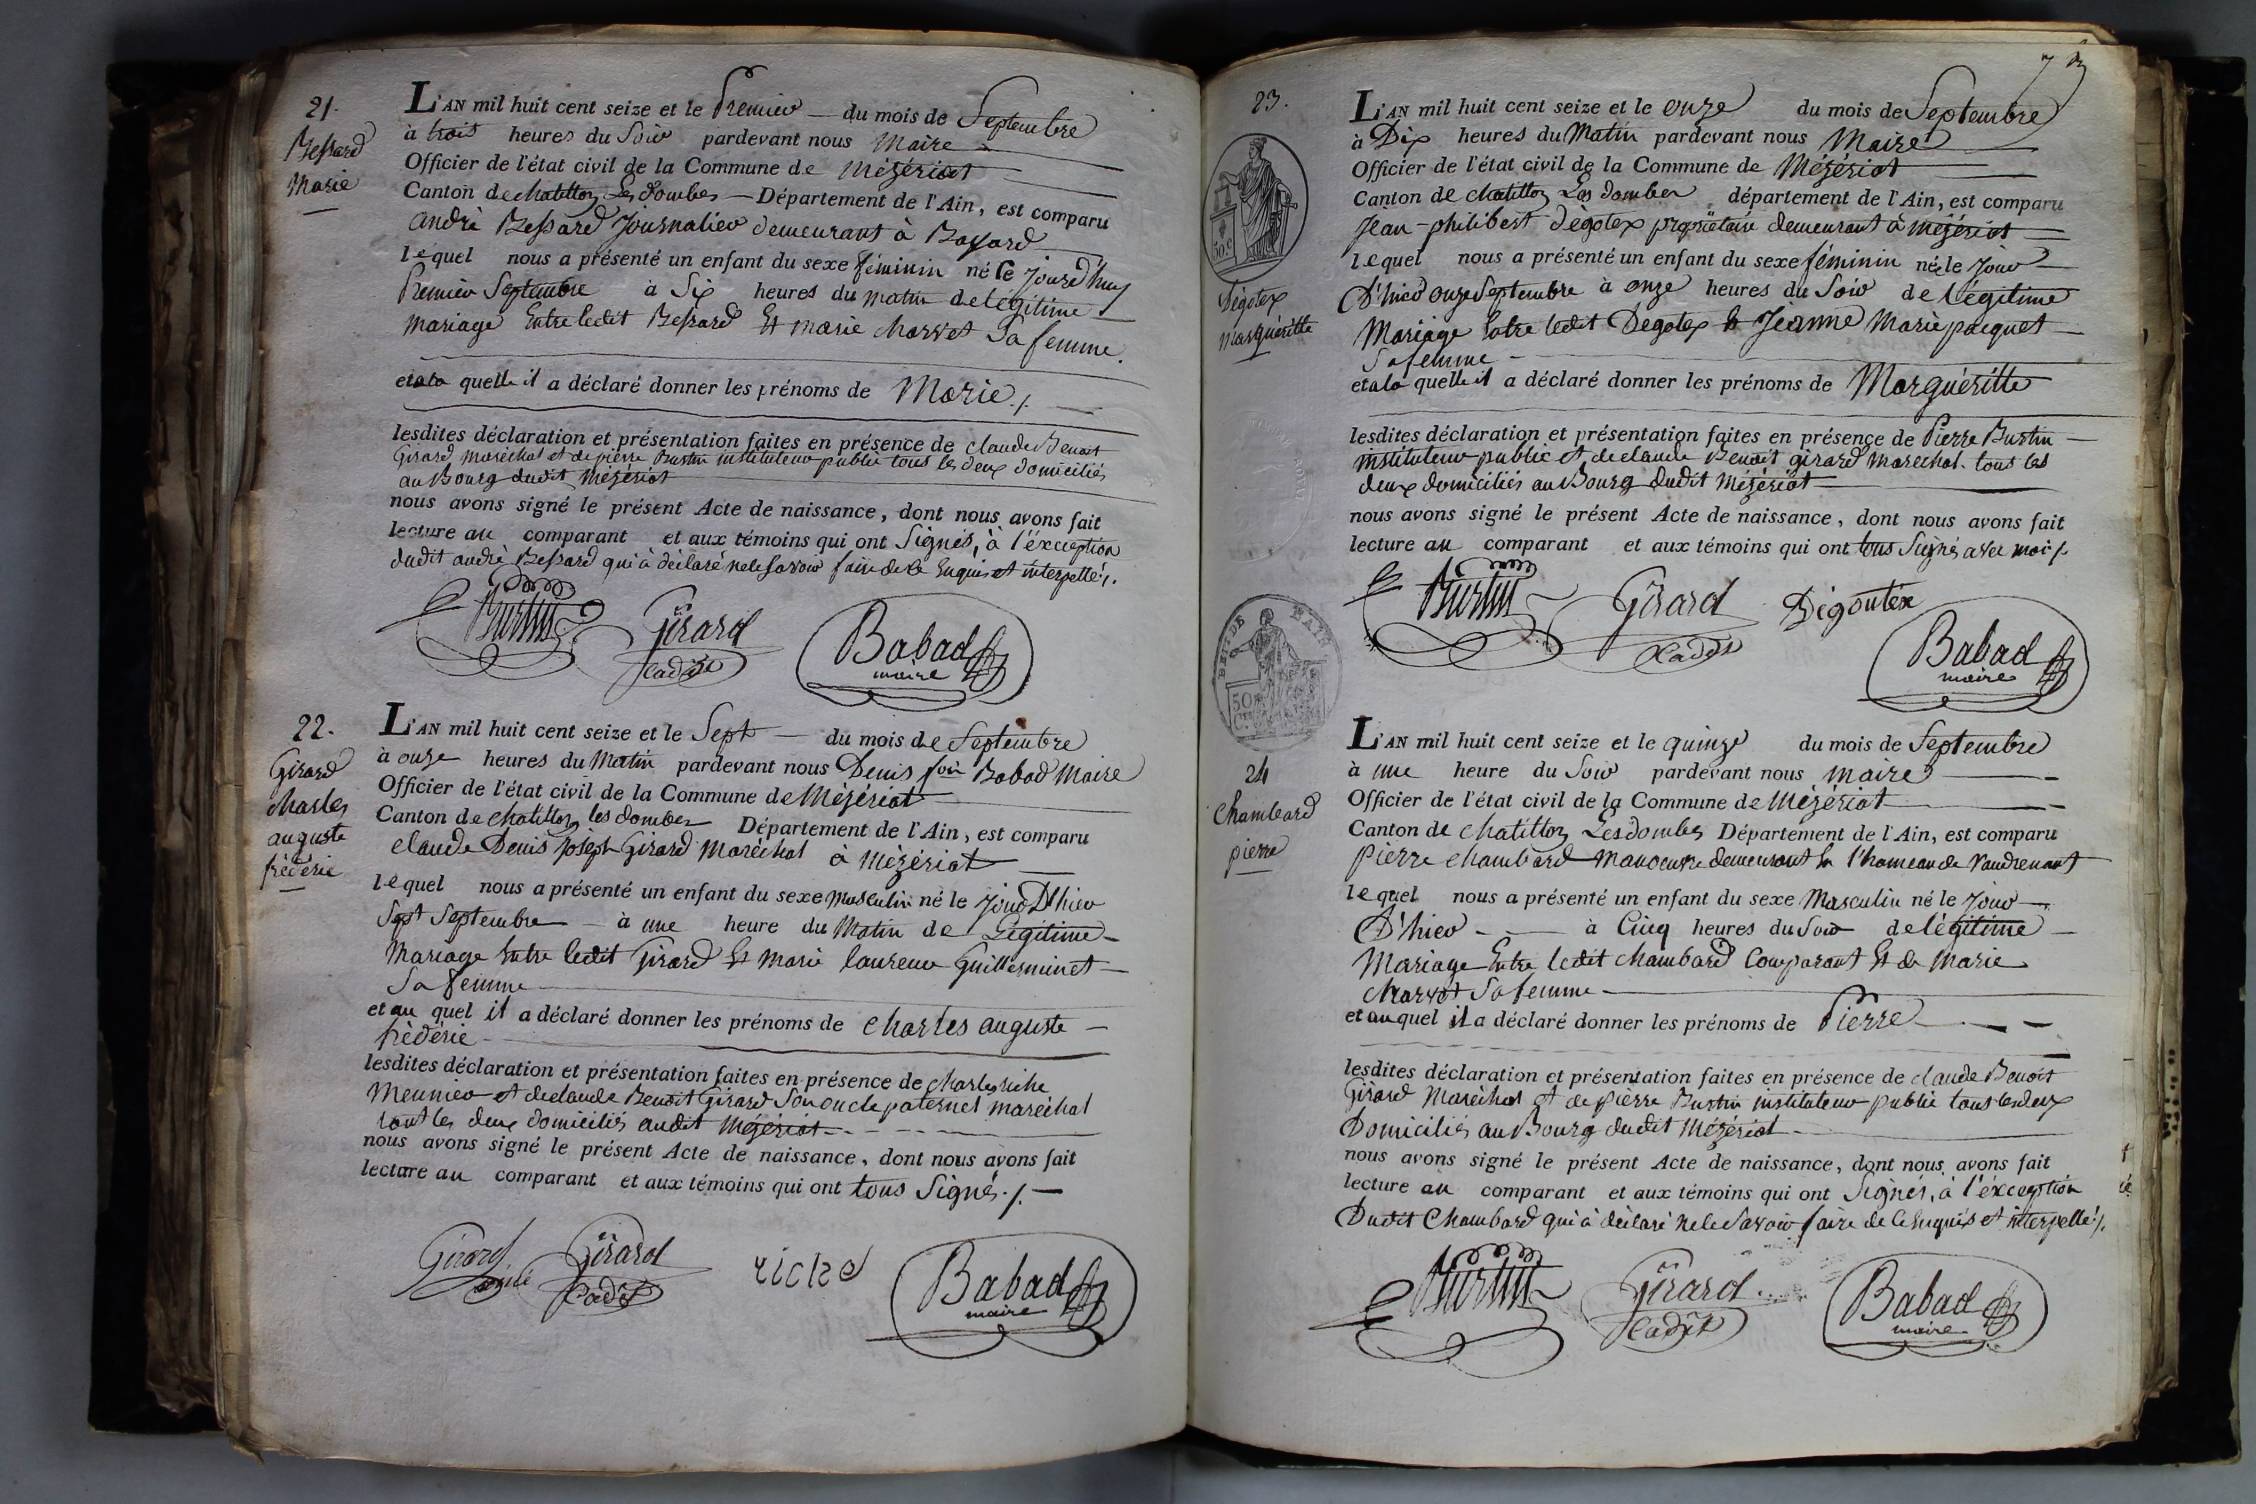 21.
Bessard
Marie
L'AN mil huit cent seize et le Premier du mois de Septembre
à trois heures du Soir pardevant nous Maire
Officier de l'état civil de la Commune de Mézériat
Canton de chatillon Les dombes Département de l'Ain, est comparu
andré Bessard Journalier demeurant à
lequel nous a présenté un enfant du sexe féminin né ce jourd'huy
Premier Septembre à Six heures du matin de légitime
mariage Entre ledit Bessard Et marie charvet Sa femme.
et a la quelle il a déclaré donner les prénoms de Marie ./.
lesdites déclaration et présentation faites en présence de claude Benoit
Girard maréchal et de pierre Burtin instituteur public tous les deux domiciliés
au Bourg dudit Mézériat
nous avons signé le présent Acte de naissance, dont nous avons fait
lecture au comparant et aux témoins qui ont Signés, à l'éxception
dudit andré Bessard qui à déclaré ne le Savoir faire de ce Enquis et interpellé ./.
Burtin Girard Babad
Cadet maire
22.
Girard
charles
auguste
fréderic
L'AN mil huit cent seize et le Sept du mois de Septembre
à onze heures du Matin pardevant nous Denis Babad Maire
Officier de l'état civil de la Commune de Mézériat
Canton de chatillon les dombes Département de l'Ain, est comparu
claude Denis joseph Girard Maréchal à Mézériat
lequel nous a présenté un enfant du sexe masculin né le jour D'hier
Sept Septembre à une heure du Matin de Légitime
Mariage Entre ledit Girard Et Marie laurence Guillerminet
Sa femme
et au quel il a déclaré donner les prénoms de charles auguste
fréderic
lesdites déclaration et présentation faites en présence de charles riche
Meunier et de claude Benoit Girard Son oncle paternel maréchal
tout les deux domiciliés audit Mézériat
nous avons signé le présent Acte de naissance, dont nous avons fait
lecture au comparant et aux témoins qui ont tous Signés ./.
Girard Girard riche Babad
Cadet maire
73
23.
50.c
Dégotex
marguéritte
L'AN mil huit cent seize et le onze du mois de Septembre
à Dix heures du Matin pardevant nous Maire
Officier de l'état civil de la Commune de Mézériat
Canton de chatillon Les dombes département de l'Ain, est comparu
Jean-philibert Dégotex propriétaire demeurant à Mézériat
lequel nous a présenté un enfant du sexe féminin née le Jour
D'hier onze Septembre à onze heures du Soir de légitime
Mariage Entre ledit Degotex & Jeanne Marie pacquet
Sa femme
et a la quelle il a déclaré donner les prénoms de Marguéritte
lesdites déclaration et présentation faites en présence de Pierre Burtin
instituteur public et de claude Benoit girard Marechal tous les
deux domiciliés au Bourg dudit Mézériat
nous avons signé le présent Acte de naissance, dont nous avons fait
lecture au comparant et aux témoins qui ont tous Signés avec moi ./.
Burtin Girard Dégoutex Babad
Cadet maire
50
24
Chambard
pierre
L'AN mil huit cent seize et le quinze du mois de Septembre
à une heure du Soir pardevant nous maire
Officier de l'état civil de la Commune de Mézériat
Canton de chatillon Les dombes Département de l'Ain, est comparu
pierre chambard Manoeuvre demeurant en l'hameau de Vaudrenant
lequel nous a présenté un enfant du sexe Masculin né le Jour
D'hier à Cinq heures du Soir de légitime
Mariage Entre ledit chambard Comparant Et de Marie
charvet Sa femme
et au quel il a déclaré donner les prénoms de Pierre
lesdites déclaration et présentation faites en présence de claude Benoit
Girard Maréchal et de pierre Burtin instituteur public tous les deux
Domiciliés au Bourg dudit Mézériat
nous avons signé le présent Acte de naissance, dont nous avons fait
lecture au comparant et aux témoins qui ont Signés, à l'éxception
Dudit Chambard qui à déclaré ne le Savoir faire de ce Enquis et interpellé ./.
Burtin Girard Babad
Cadet maire